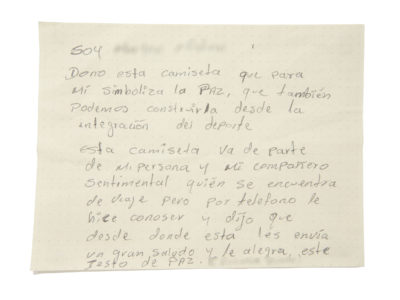 SOY
Dono esta camiseta que para
mí simboliza la PAZ, que también
Podemos construirla desde la
integración del deporte
esta camiseta va de parte
de mi persona y mi compañero
sentimental quién se encuentra
de viaje pero por teléfono le
hice conoser y dijo que
desde donde esta les envía
un gran saludo y le alegra, este
Jesto de PAZ.